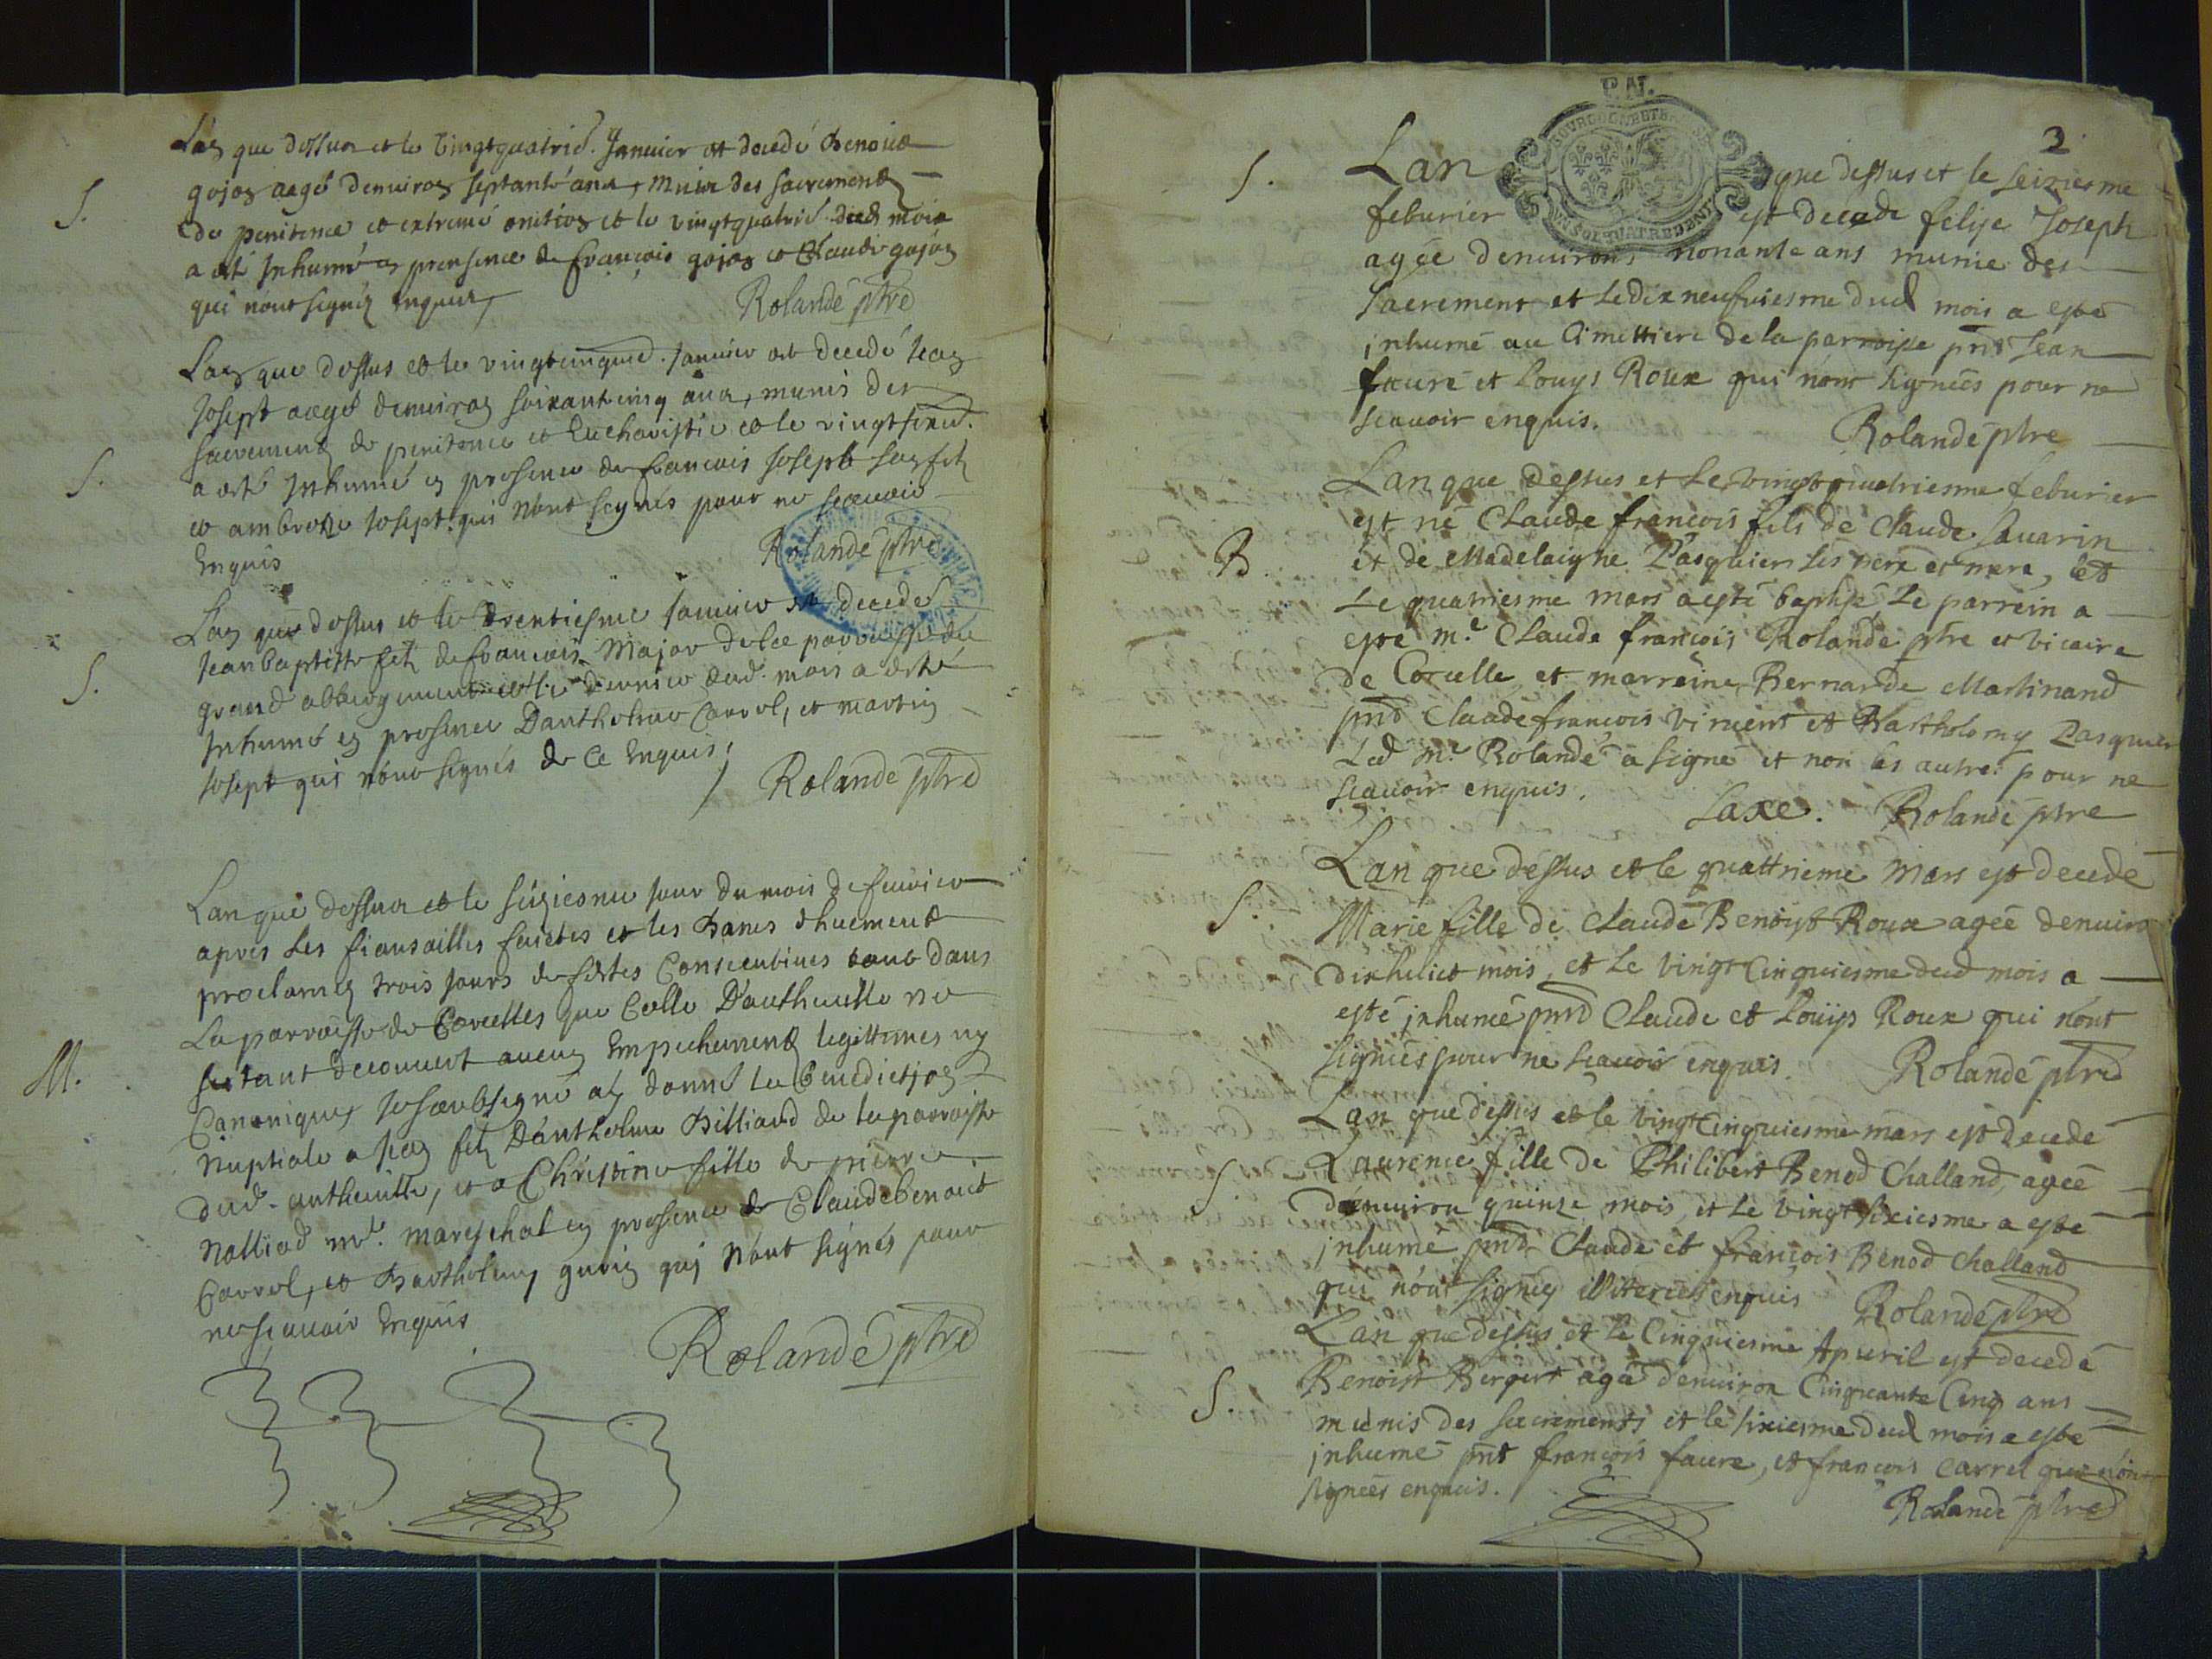 Lan que dessus et le vingtquatrie. Janvier est decedé Benoist
S.
gojon aagé denviron septante ans, munis des sacrements
de penitence et extreme onction et le vingtquatrie dud mois
a esté Inhumé en presence de françois gojon et Claude gojon
qui nont signéz enquis
Rolande ptre
Lan que dessus et le vingtcinquie. Janvier est decedé Jean
Josept aagé denviron soixantcinq ans, munis des
sacrements de penitence et Eucharistie et le vingtsixie.
S.
a esté Inhumé en presence de francois Joseph son filz
et ambroize Josept qui Nont signés pour ne scavoir
Enquis
Rolande ptre
Lan que dessus et le trentiesme Janvier est decedé
Jean baptiste filz de francois Major de la parroisse du
S.
grand abbergement et le dernier dud. mois a esté
Inhumé en presence Danthelme Carrel, et martin
Josept qui nont signés de ce Enquis
Rolande ptre
Lan que dessus et le seziesme Jour du mois de feuvrier
apres les fiansailles faictes et les Bans dhuement
proclamez trois Jours de festes Consecutives tant dans
La parroisse de Corcelles que Celle Dauthuille ne
M.
sestant decouvert aucun Empechement legittimes ny
Canoniques Je soubsigné ay donné la benediction
Nuptiale a Jean filz Danthelme Billiand de la parroisse
dud. , et a Christine fille de pierre
mareschal en presence de Claude benoit
Carrel, et Barthelemy qui Nont signés pour
ne scavoir Enquis
Rolande ptre
P.N.
2
S.
Lan que dessus et le seiziesme
feburier est decede felise Joseph
agée denvirons nonante ans munie des
sacrement et le dix neufviesme dud mois a esté
inhumé au Cimettiere de la parroisse pnt Jean
faure et Louys Roux qui nont signées pour ne
scavoir enquis.
Rolande ptre
Lan que dessus et le vingt quatriesme feburier
est né Claude françois fils de Claude Savarin
B.
et de Madelaigne Pasquier ses pere et mere, et
Le quatriesme mars a esté baptisé Le parrein a
esté m.e Claude françois Rolande ptre et vicaire
de Corcelle, et marreine Bernarde Martinand
pnd Claude francois Vincent et Bartholomy Pasquier
Led m.e Rolande a signé et non les autres pour ne
scavoir enquis.
Saxe. Rolande ptre
Lan que dessus et le quattrieme Mars est decedé
S.
Marie fille de Claude Benoist Roux agée denviron
dixhuict mois, et Le vingt Cinquiesme dud mois a
esté inhumé pnd Claude et Louijs Roux qui nont
signées pour ne scavoir enquis.
Rolande ptre
Lan que dessus et le vingt Cinquiesme mars est decedé
S.
Laurence fille de Philibert Benod Challand, agée
denviron quinze mois, et Le vingt sixiesme a esté
inhumé pnd Claude et françois Benod Challand
qui nont signez enquis
Rolande ptre
Lan que dessus et le Cinquiesme Apvril est decedé
S.
Benoist Bergeret agé denviron Cinquante Cinq ans
munis des sacrements et le sixiesme dud mois a esté
inhumé pnt françois faure, et françois Carrel qui nont
signées enquis.
Rolande ptre